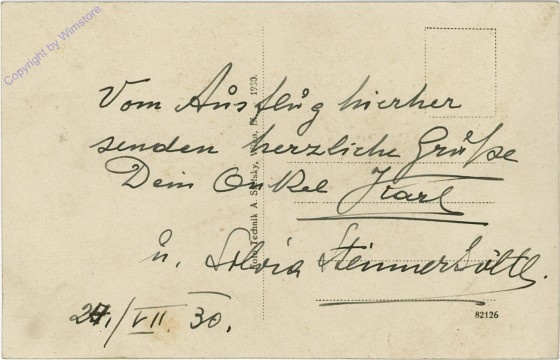 Copyright by Wimstore
Vom Ausflug hierher
senden herzliche Grüße
Dein Onkel Karl
u. Silvia
/VII. 30.
Technik A.
1930.
82126